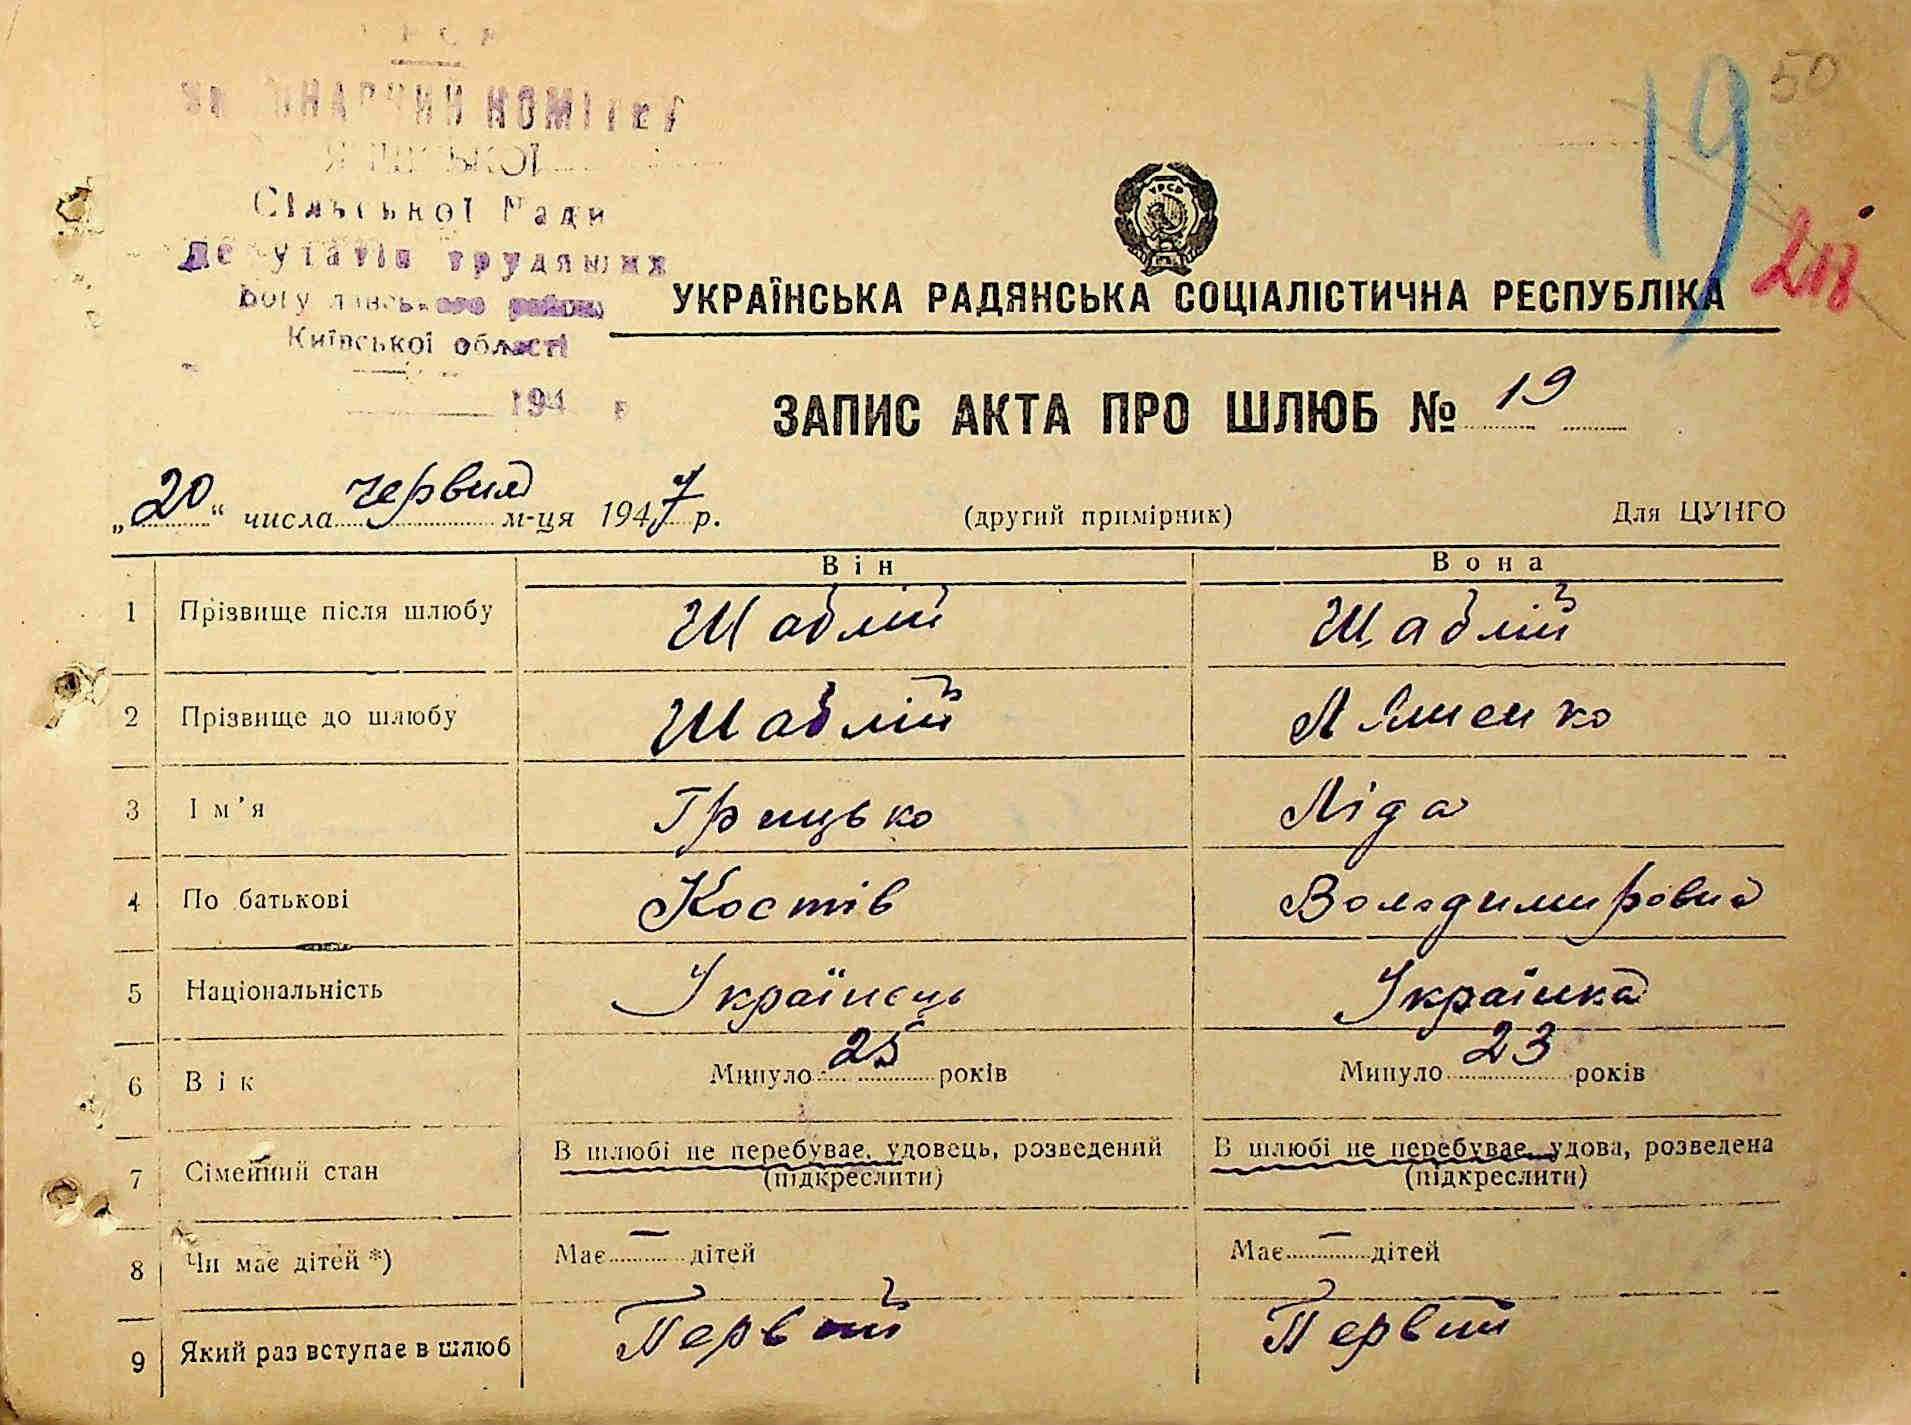 УРСР
ВИКОНАВЧИЙ КОМІТЕТ
Сільської Ради
Депутатів трудящих
Богуславського району
Київської області
194 р
50
19
218
УРСР
УКРАЇНСЬКА РАДЯНСЬКА СОЦІАЛІСТИЧНА РЕСПУБЛІКА
ЗАПИС АКТА ПРО ШЛЮБ № 19
„20“ числа червня м-ця 1947 р. (другий примірник) Для ЦУНГО
Він Вона
1 Прізвище після шлюбу Шаблій Шаблій
2 Прізвище до шлюбу Шаблій
3 Ім'я Грицько Ліда
4 По батькові Костів Володимировна
5 Національність Українець Українка
6 Вік Минуло 25 років Минуло 23 років
7 Сімейний стан В шлюбі не перебуває, удовець, розведений В шлюбі не перебуває, удова, розведена
(підкреслити) (підкреслити)
8 Чи має дітей *) Має — дітей Має — дітей
9 Який раз вступає в шлюб Первий Первий